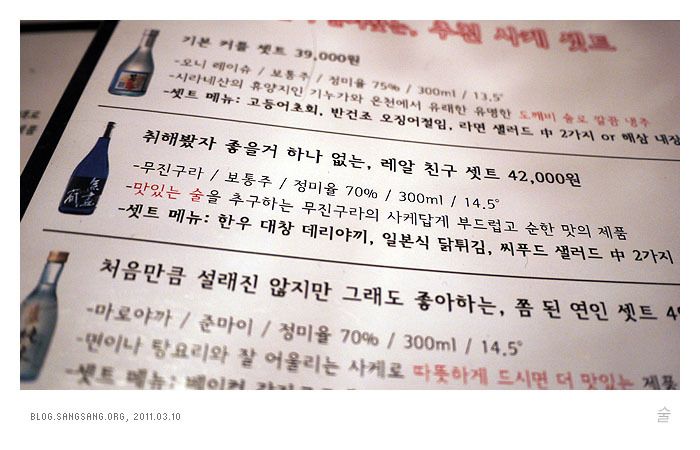 우원 사케 셋트
기본 커플 셋트 39,000원
-오니 레이슈 / 보통주 / 정미율 75% / 300ml / 13.5˚
-시라네산의 휴양지인 기누가와 온천에서 유래한 유명한 도깨비 술로 깔끔 냉주
-셋트 메뉴: 고등어초회, 반건조 오징어절임, 라면 샐러드 中 2가지 or 해삼 내장
취해봤자 좋을거 하나 없는, 레알 친구 셋트 42,000원
-무진구라 / 보통주 / 정미율 70% / 300ml / 14.5˚
-맛있는 술을 추구하는 무진구라의 사케답게 부드럽고 순한 맛의 제품
-셋트 메뉴: 한우 대창 데리야끼, 일본식 닭튀김, 씨푸드 샐러드 中 2가지
처음만큼 설래진 않지만 그래도 좋아하는, 쫌 된 연인 셋트 4
-마로야까 / 준마이 / 정미율 70% / 300ml / 14.5˚
-면이나 탕요리와 잘 어울리는 사케로 따뜻하게 드시면 더 맛있는 제품
-셋트 메뉴:
BLOG.SANGSANG.ORG, 2011.03.10
술